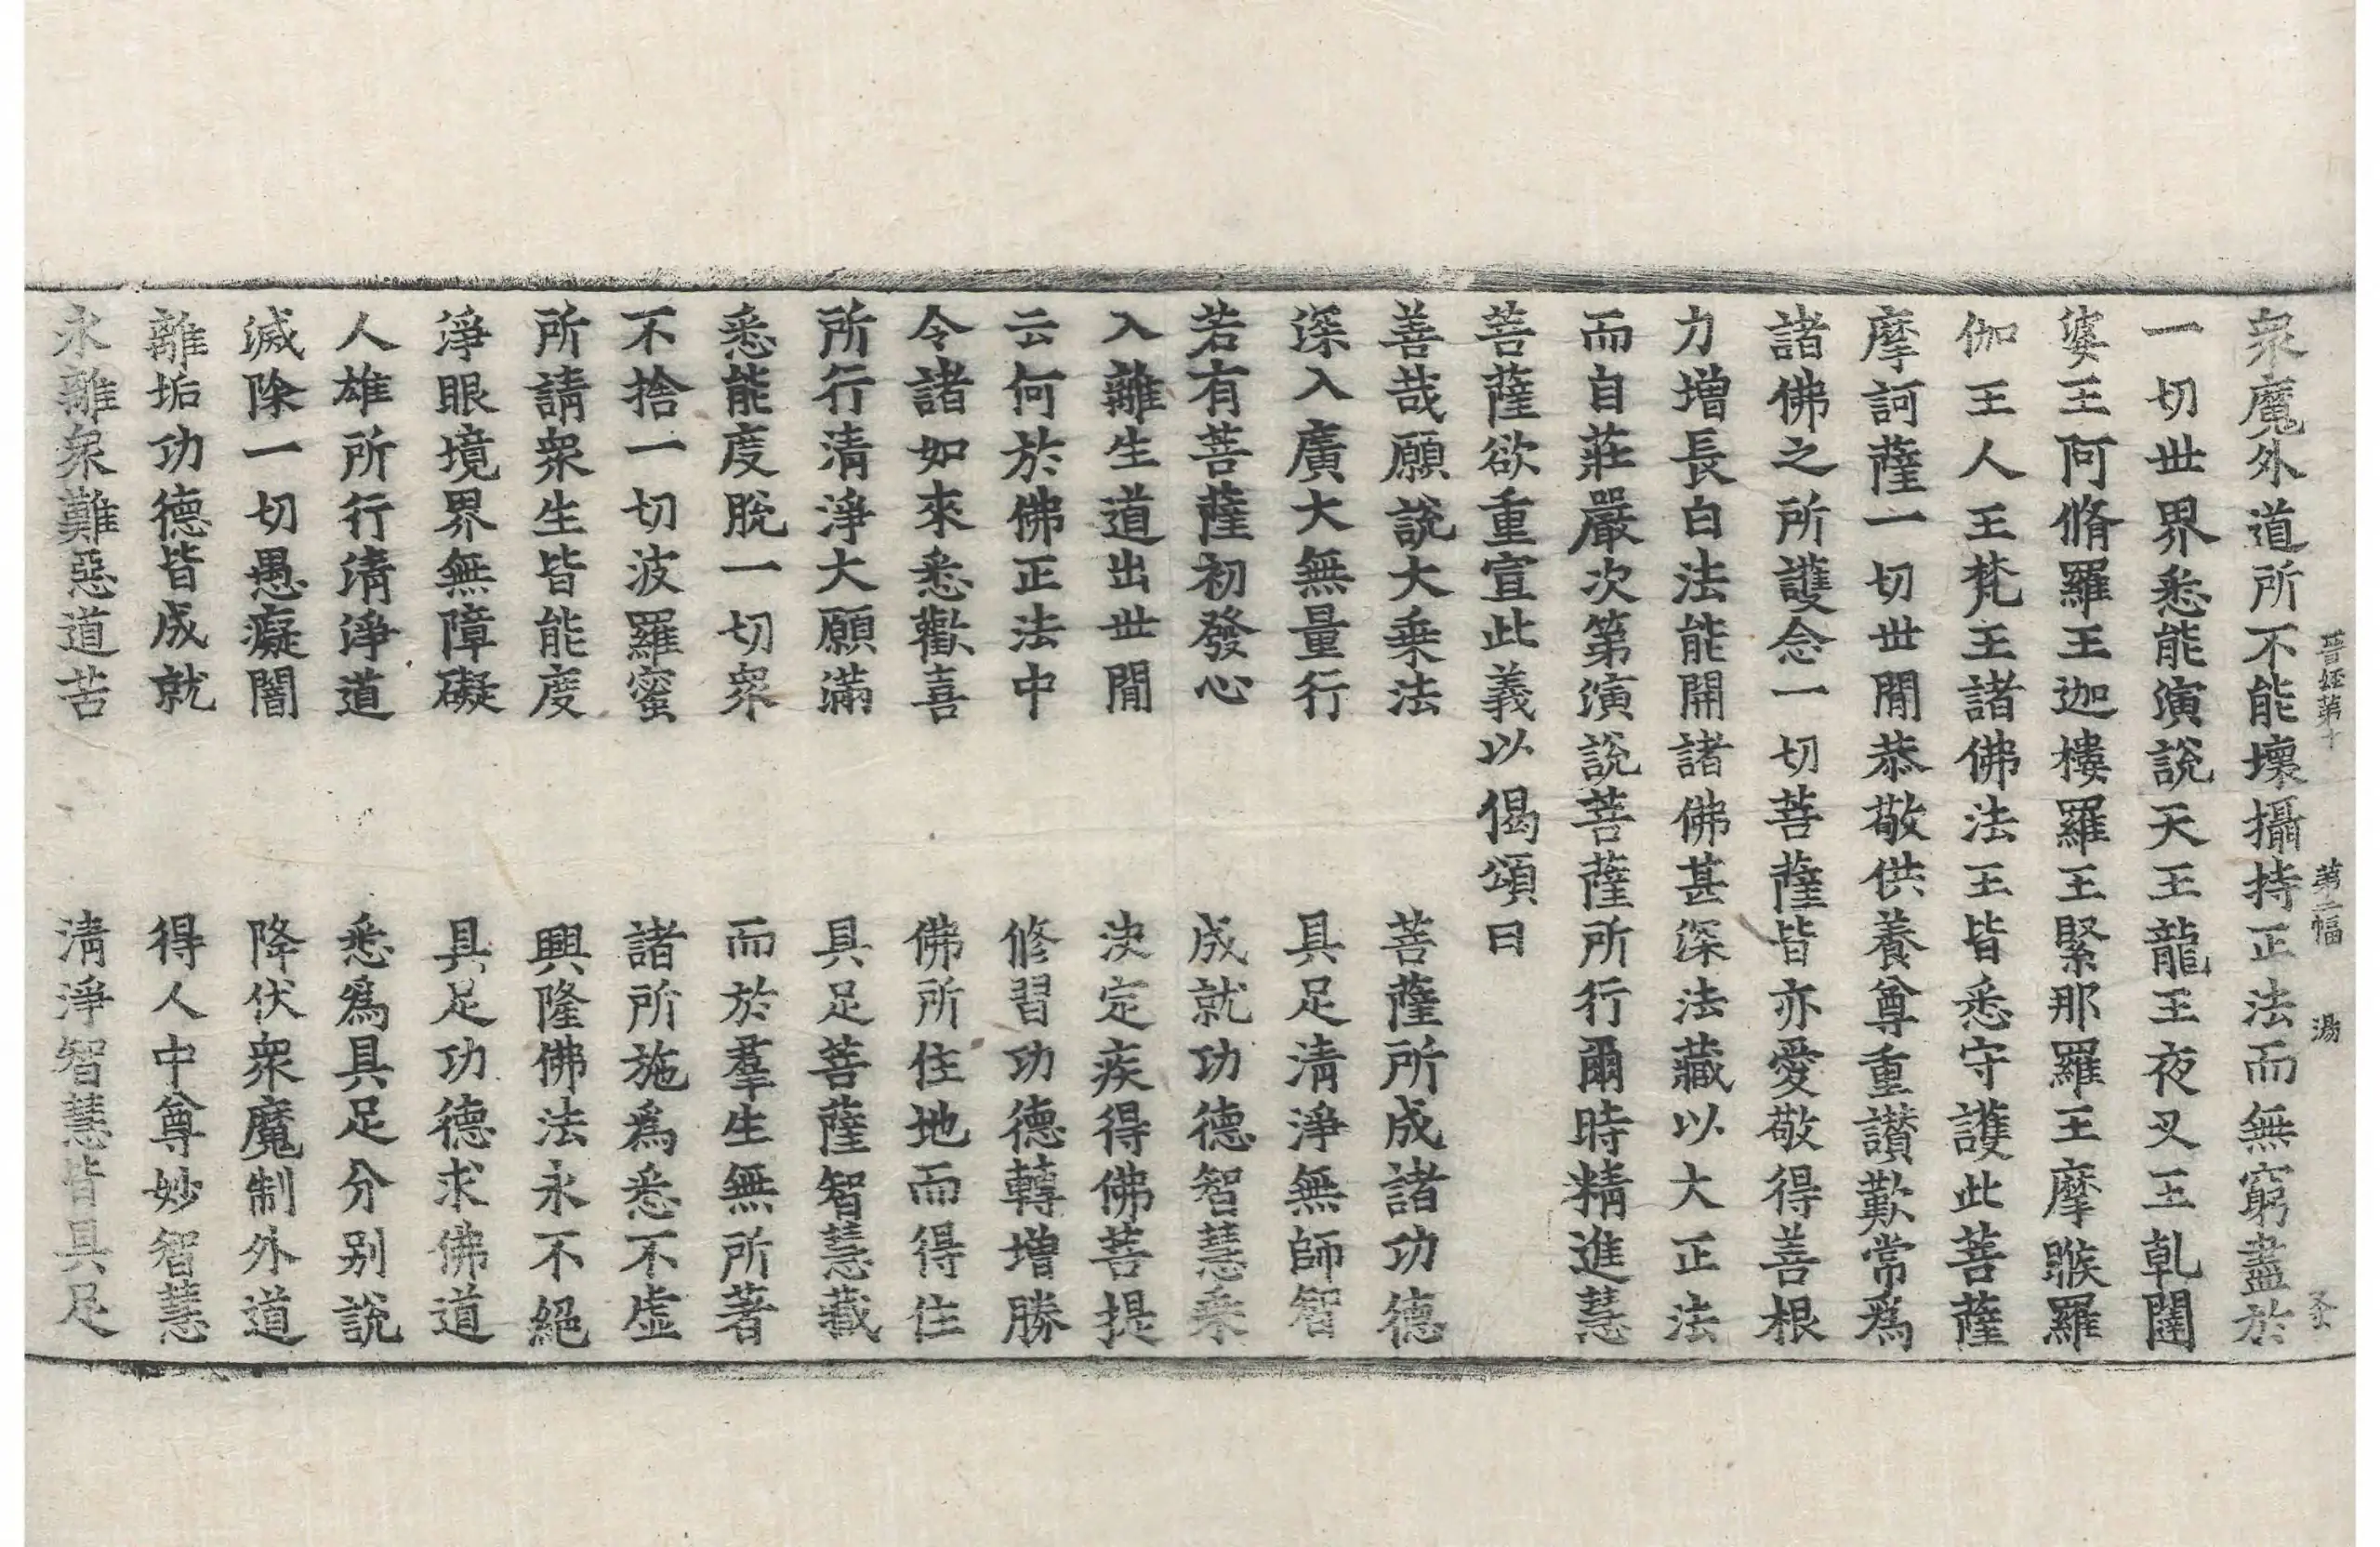 晉経第十 第二幅 湯
衆魔外道所不能壞攝持正法而無窮盡於
一切世界悉能演說天王龍王夜叉王乹闥
婆王阿脩羅王迦樓羅王緊那羅王摩睺羅
伽王人王梵王諸佛法王皆悉守護此菩薩
摩訶薩一切世閒恭敬供養尊重讃歎常爲
諸佛之所護念一切菩薩皆亦愛敬得善根
力增長白法能開諸佛甚深法藏以大正法
而自莊嚴次第演說菩薩所行爾時精進慧
菩薩欲重宣此義以偈頌曰
善哉願說大乗法 菩薩所成諸功德
深入廣大無量行 具足清淨無師智
若有菩薩初發心 成就功德智慧乗
入離生道出世閒 決定疾得佛菩提
云何於佛正法中 修習功德轉增勝
令諸如來悉歡喜 佛所住地而得住
所行清淨大願滿 具足菩薩智慧藏
悉能度脫一切衆 而於羣生無所著
不捨一切波羅蜜 諸所施爲悉不虛
所請衆生皆能度 興隆佛法永不絕
淨眼境界無障礙 具足功德求佛道
人雄所行清淨道 悉爲具足分别說
滅除一切愚癡闇 降伏衆魔制外道
離垢功德皆成就 得人中尊妙智慧
永離衆難惡道苦 清淨智慧皆具足